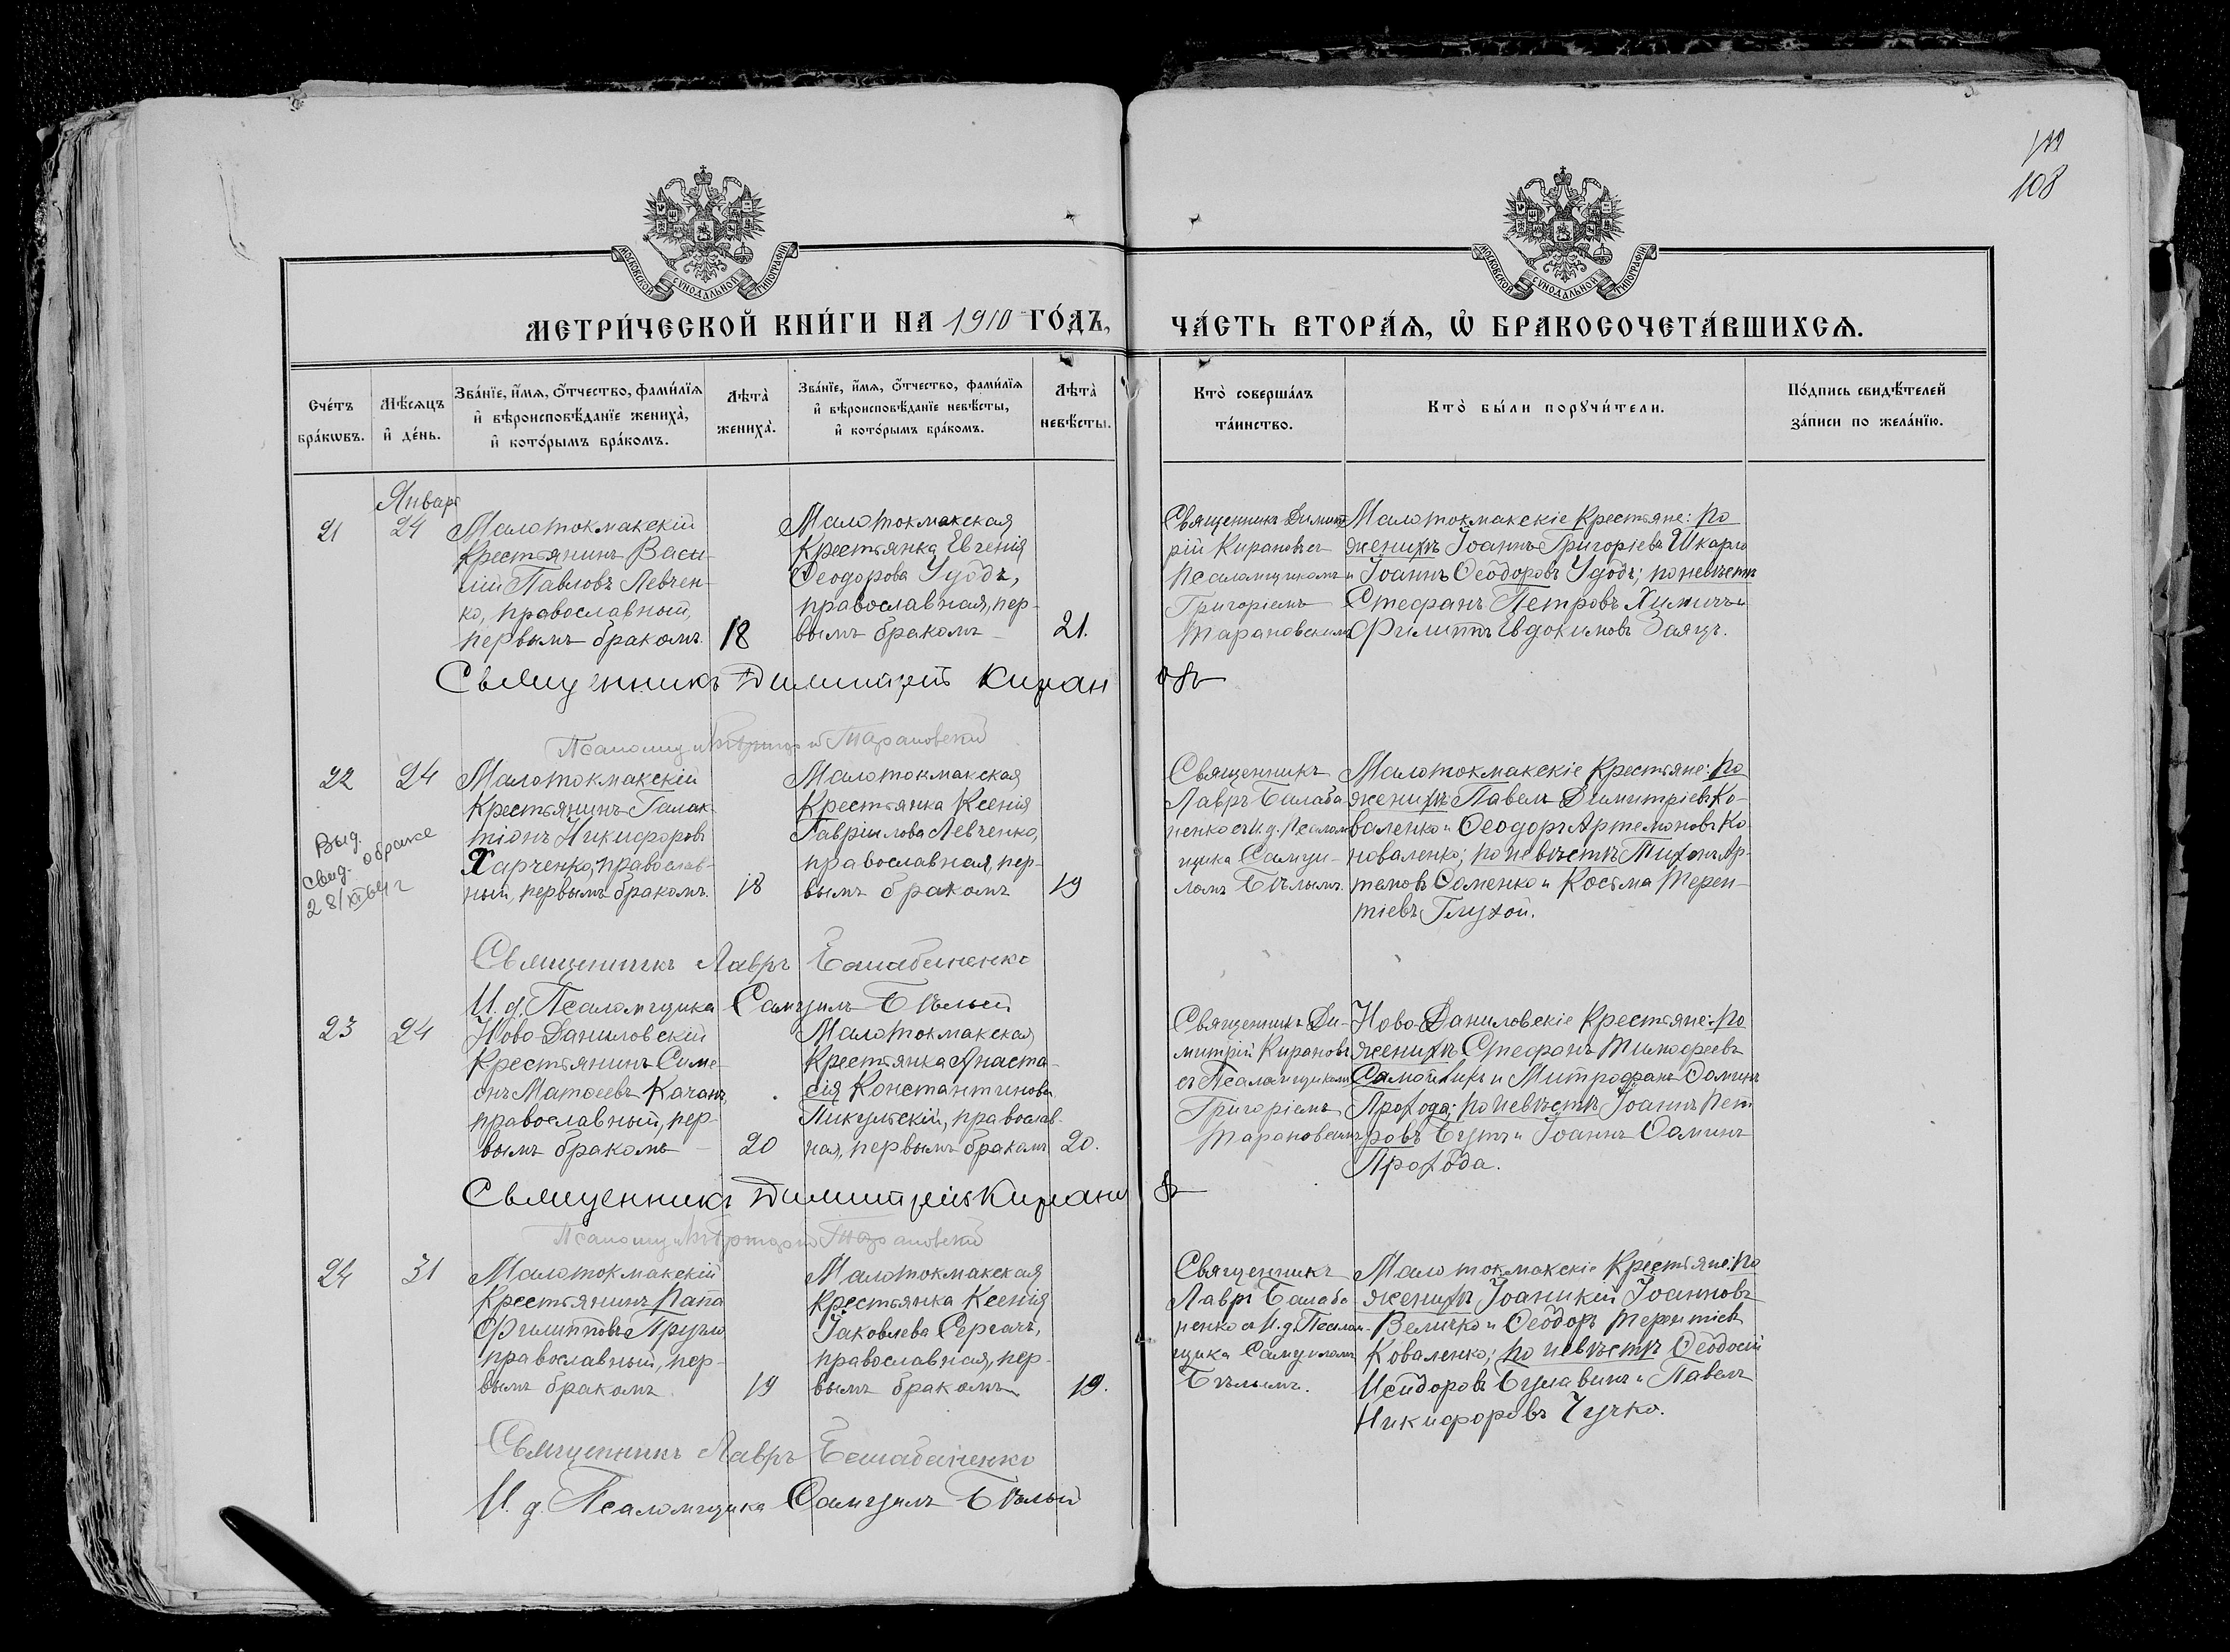 199
108
МОСКОВСКОЙ СѴНОДАЛЬНОЙ ТИПОГРАФІИ
МОСКОВСКОЙ СѴНОДАЛЬНОЙ ТИПОГРАФІИ
МЕТРИ́ЧЕСКОЙ КНИ́ГИ НА 1910 ГО́ДЪ,
ЧА́СТЬ ВТОРА́Ѧ, Ѡ҆ БРАКОСОЧЕТА́ВШИХСѦ.
Сче́тъ
бра́кѡвъ.
Мѣ́сѧцъ
и҆ де́нь.
Зва́нїе, и҆́мѧ, ѻ҆́тчество, фами́лїѧ
и҆ вѣроисповѣ́данїе жениха̀,
и҆ кото́рымъ бра́комъ.
Лѣта̀
жениха̀.
Зва́нїе, и҆́мѧ, ѻ҆́тчество, фами́лїѧ
и҆ вѣроисповѣ́данїе невѣ́сты,
и҆ кото́рымъ бра́комъ.
Лѣта̀
невѣ́сты.
Кто̀ соверша́лъ
та́инство.
Кто̀ бы́ли порꙋчи́тели.
По́дпись свидѣ́телей
за́писи по жела́нїю.
21
Январь
24
Малотокмакскій
крестьянинъ Васи-
лій Павловъ Левчен-
ко, православный,
первымъ бракомъ.
18
Малотокмакская
крестьянка Евгенія
Ѳеодорова Удодъ,
православная, пер-
вымъ бракомъ
21.
Священникъ Димит-
рій Кирановъ съ
Псаломщикомъ
Григоріемъ
Тарановскимъ
Малотокмакскіе крестьяне: по
женихѣ Іоаннъ Григоріевъ Шкарло
и Іоаннъ Ѳеодоровъ Удодъ; по невѣстѣ
Стефанъ Петровъ Химичъ и
Филиппъ Евдокимовъ Заяцъ.
Священникъ Димитрій Кирановъ
Псаломщикъ Григорій Тарановскій
22
24
Выд.
свид. о браке
28/XI 64 г
Малотокмакскій
крестьянинъ Галак-
тіонъ Никифоровъ
Харченко, православ-
ный, первымъ бракомъ.
18
Малотокмакская
крестьянка Ксенія
Гавріилова Левченко,
православная, пер-
вымъ бракомъ
19
Священникъ
Лавръ Балаба-
ненко съ И. д. Псалом-
щика Самуи-
ломъ Бѣлымъ.
Малотокмакскіе крестьяне: по
женихѣ Павелъ Димитріевъ Ко-
валенко и Ѳеодоръ Артемоновъ Ко-
новаленко; по невѣстѣ Тихонъ Ар-
темовъ Соменко и Косьма Терен-
тіевъ Глухой.
Священникъ Лавръ Балабаненко
И. д. Псаломщика Самуилъ Бѣлый
23
24
Ново-Даниловскій
крестьянинъ Симе-
онъ Матѳеевъ Качанъ,
православный, пер-
вымъ бракомъ
20
Малотокмакская
крестьянка Анаста-
сія Константинова
Пикульскій, православ-
ная, первымъ бракомъ
20.
Священникъ Ди-
митрій Кирановъ
съ Псаломщикомъ
Григоріемъ
Тарановскимъ
Ново-Даниловскіе крестьяне: по
женихѣ Стефанъ Тимоѳеевъ
Самойликъ и Митрофанъ Ѳоминъ
Прохода; по невѣстѣ Іоаннъ Пет-
ровъ Бутъ и Іоаннъ Ѳоминъ
Прохода.
Священникъ Димитрій Кирановъ
Псаломщикъ Григорій Тарановскій
24
31
Малотокмакскій
крестьянинъ Папа
Филипповъ Пругло
православный, пер-
вымъ бракомъ
19
Малотокмакская
крестьянка Ксенія
Іаковлева Сергачъ,
православная, пер-
вымъ бракомъ
19.
Священникъ
Лавръ Балаба-
ненко съ И. д. Псалом-
щика Самуиломъ
Бѣлымъ.
Малотокмакскіе крестьяне: по
женихѣ Іоаникій Іоанновъ
Величко и Ѳеодоръ Терентіевъ
Коваленко; по невѣстѣ Ѳеодосій
Исидоровъ Булавинъ и Павелъ
Никифоровъ Чучко.
Священникъ Лавръ Балабаненко
И. д. Псаломщика Самуилъ Бѣлый